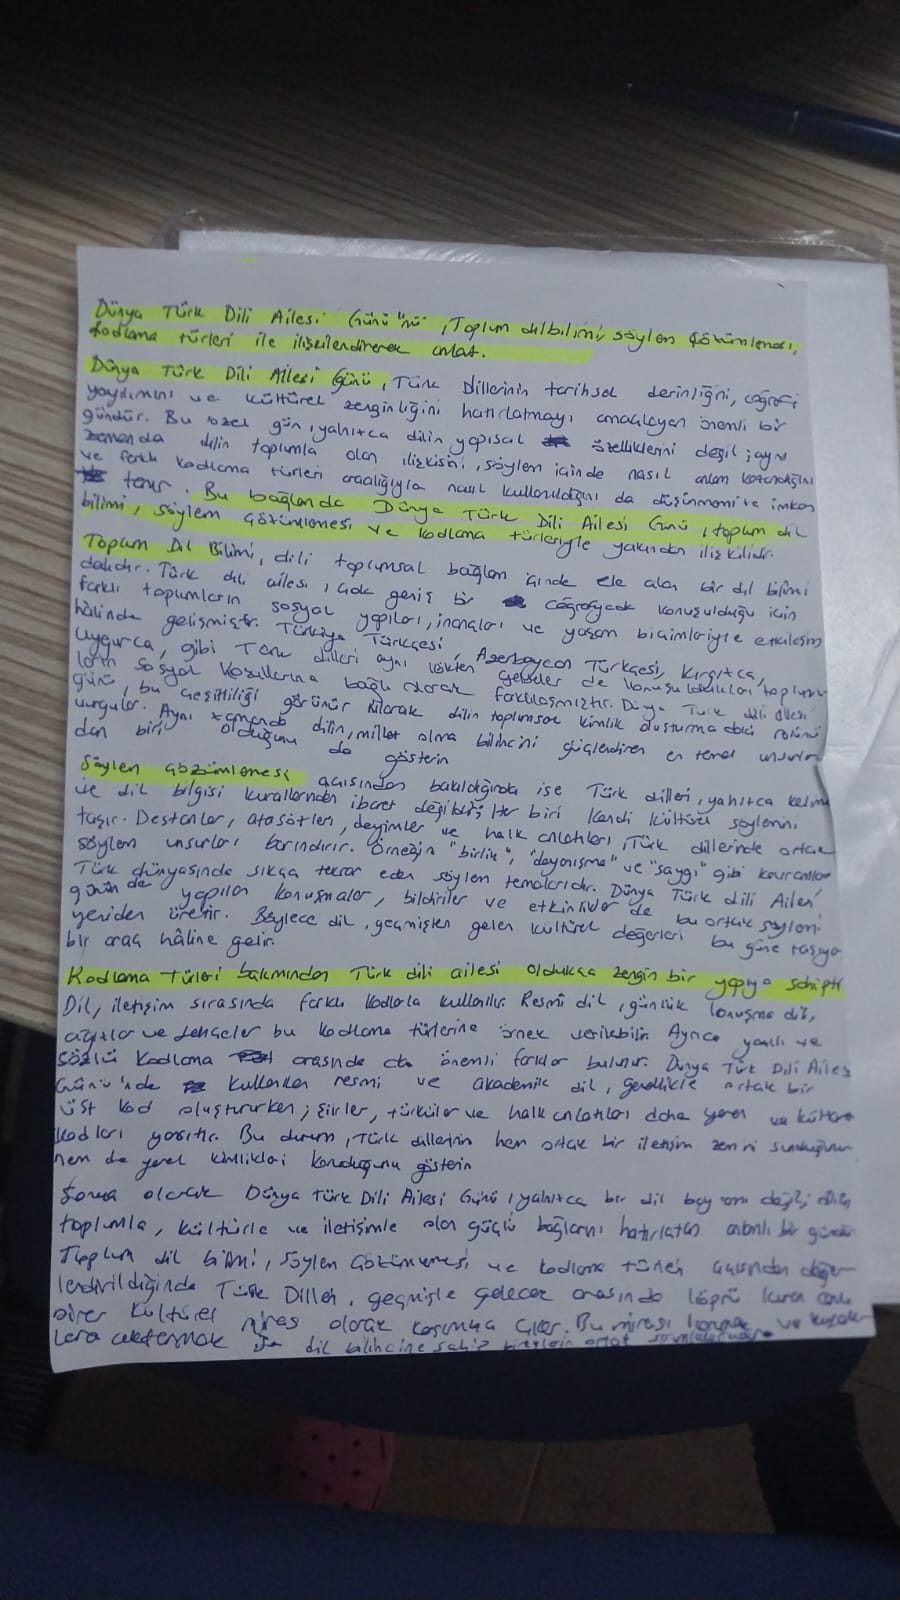 Dünya Türk Dili Ailesi Günü"nü" , Toplum dilbilimi, söylem Çözümlemesi,
kodlama türleri ile ilişkilendirerek anlat.
Dünya Türk Dili Ailesi Günü, Türk Dillerinin tarihsel derinliğini, coğrafi
yayılımını ve kültürel zenginliğini hatırlatmayı amaçlayan önemli bir
gündür. Bu özel gün, yalnızca dilin yapısal özelliklerini değil; aynı
zamanda dilin toplumla olan ilişkisini, söylem içinde nasıl anlam kazandığını
ve farklı kodlama türleri aracılığıyla nasıl kullanıldığını da düşünmemize imkan
tanır. Bu bağlamda Dünya Türk Dili Ailesi Günü, toplum dil
bilimi, söylem çözümlemesi ve kodlama türleriyle yakından ilişkilidir.
Toplum Dil Bilimi, dili toplumsal bağlam içinde ele alan bir dil bilimi
dalıdır. Türk dili ailesi, çok geniş bir coğrafyada konuşulduğu için
farklı toplumların sosyal yapıları, inançları ve yaşam biçimleriyle etkileşim
hâlinde gelişmiştir. Türkiye Türkçesi, Azerbaycan Türkçesi, Kırgızca,
Uygurca, gibi Türk dilleri aynı kökten gelseler de konuşuldukları toplum
ların sosyal koşullarına bağlı olarak farklılaşmıştır. Dünya Türk dili ailesi
günü, bu çeşitliliği görünür kılarak dilin toplumsal kimlik oluşturmadaki rolünü
vurgular. Aynı zamanda dilin, millet olma bilincini güçlendiren en temel unsurlar
dan biri olduğunu da gösterir.
Söylem çözümlemesi açısından bakıldığında ise Türk dilleri, yalnızca kelime
ve dil bilgisi kurallarından ibaret değildir; Her biri kendi kültürel söylemini
taşır. Destanlar, atasözleri, deyimler ve halk anlatıları, Türk dillerinde ortak
söylem unsurları barındırır. Örneğin "birlik", "dayanışma" ve "saygı" gibi kavramlar
Türk dünyasında sıkça tekrar eden söylem temalarıdır. Dünya Türk Dili Ailesi
günün de yapılan konuşmalar, bildiriler ve etkinlikler de bu ortak söylemi
yeniden üretir. Böylece dil, geçmişten gelen kültürel değerleri bu güne taşıyan
bir araç hâline gelir.
Kodlama türleri bakımından Türk dili ailesi oldukça zengin bir yapıya sahiptir.
Dil, iletişim sırasında farklı kodlarla kullanılır. Resmî dil, günlük konuşma dili,
ağızlar ve lehçeler bu kodlama türlerine örnek verilebilir. Ayrıca yazılı ve
sözlü kodlama arasında da önemli farklar bulunur. Dünya Türk Dili Ailesi
Günü'nde kullanılan resmi ve akademik dil, genellikle ortak bir
üst kod oluştururken; şiirler, türküler ve halk anlatıları daha yerel ve kültürel
kodları yansıtır. Bu durum, Türk dillerinin hem ortak bir iletişim zemini sunduğunu
hem de yerel kimlikleri koruduğunu gösterir.
Sonuç olarak Dünya Türk Dili Ailesi Günü, yalnızca bir dil bayramı değil; dilin
toplumla, kültürle ve iletişimle olan güçlü bağlarını hatırlatan anlamlı bir gündür.
Toplum dil bilimi, söylem çözümlemesi ve kodlama türleri açısından değer
lendirildiğinde Türk Dilleri, geçmişle gelecek arasında köprü kuran canlı
birer kültürel miras olarak karşımıza çıkar. Bu mirası korumak ve kuşak
lara aktarmak ise dil bilincine sahip bireylerin ortak sorumluluğudur.